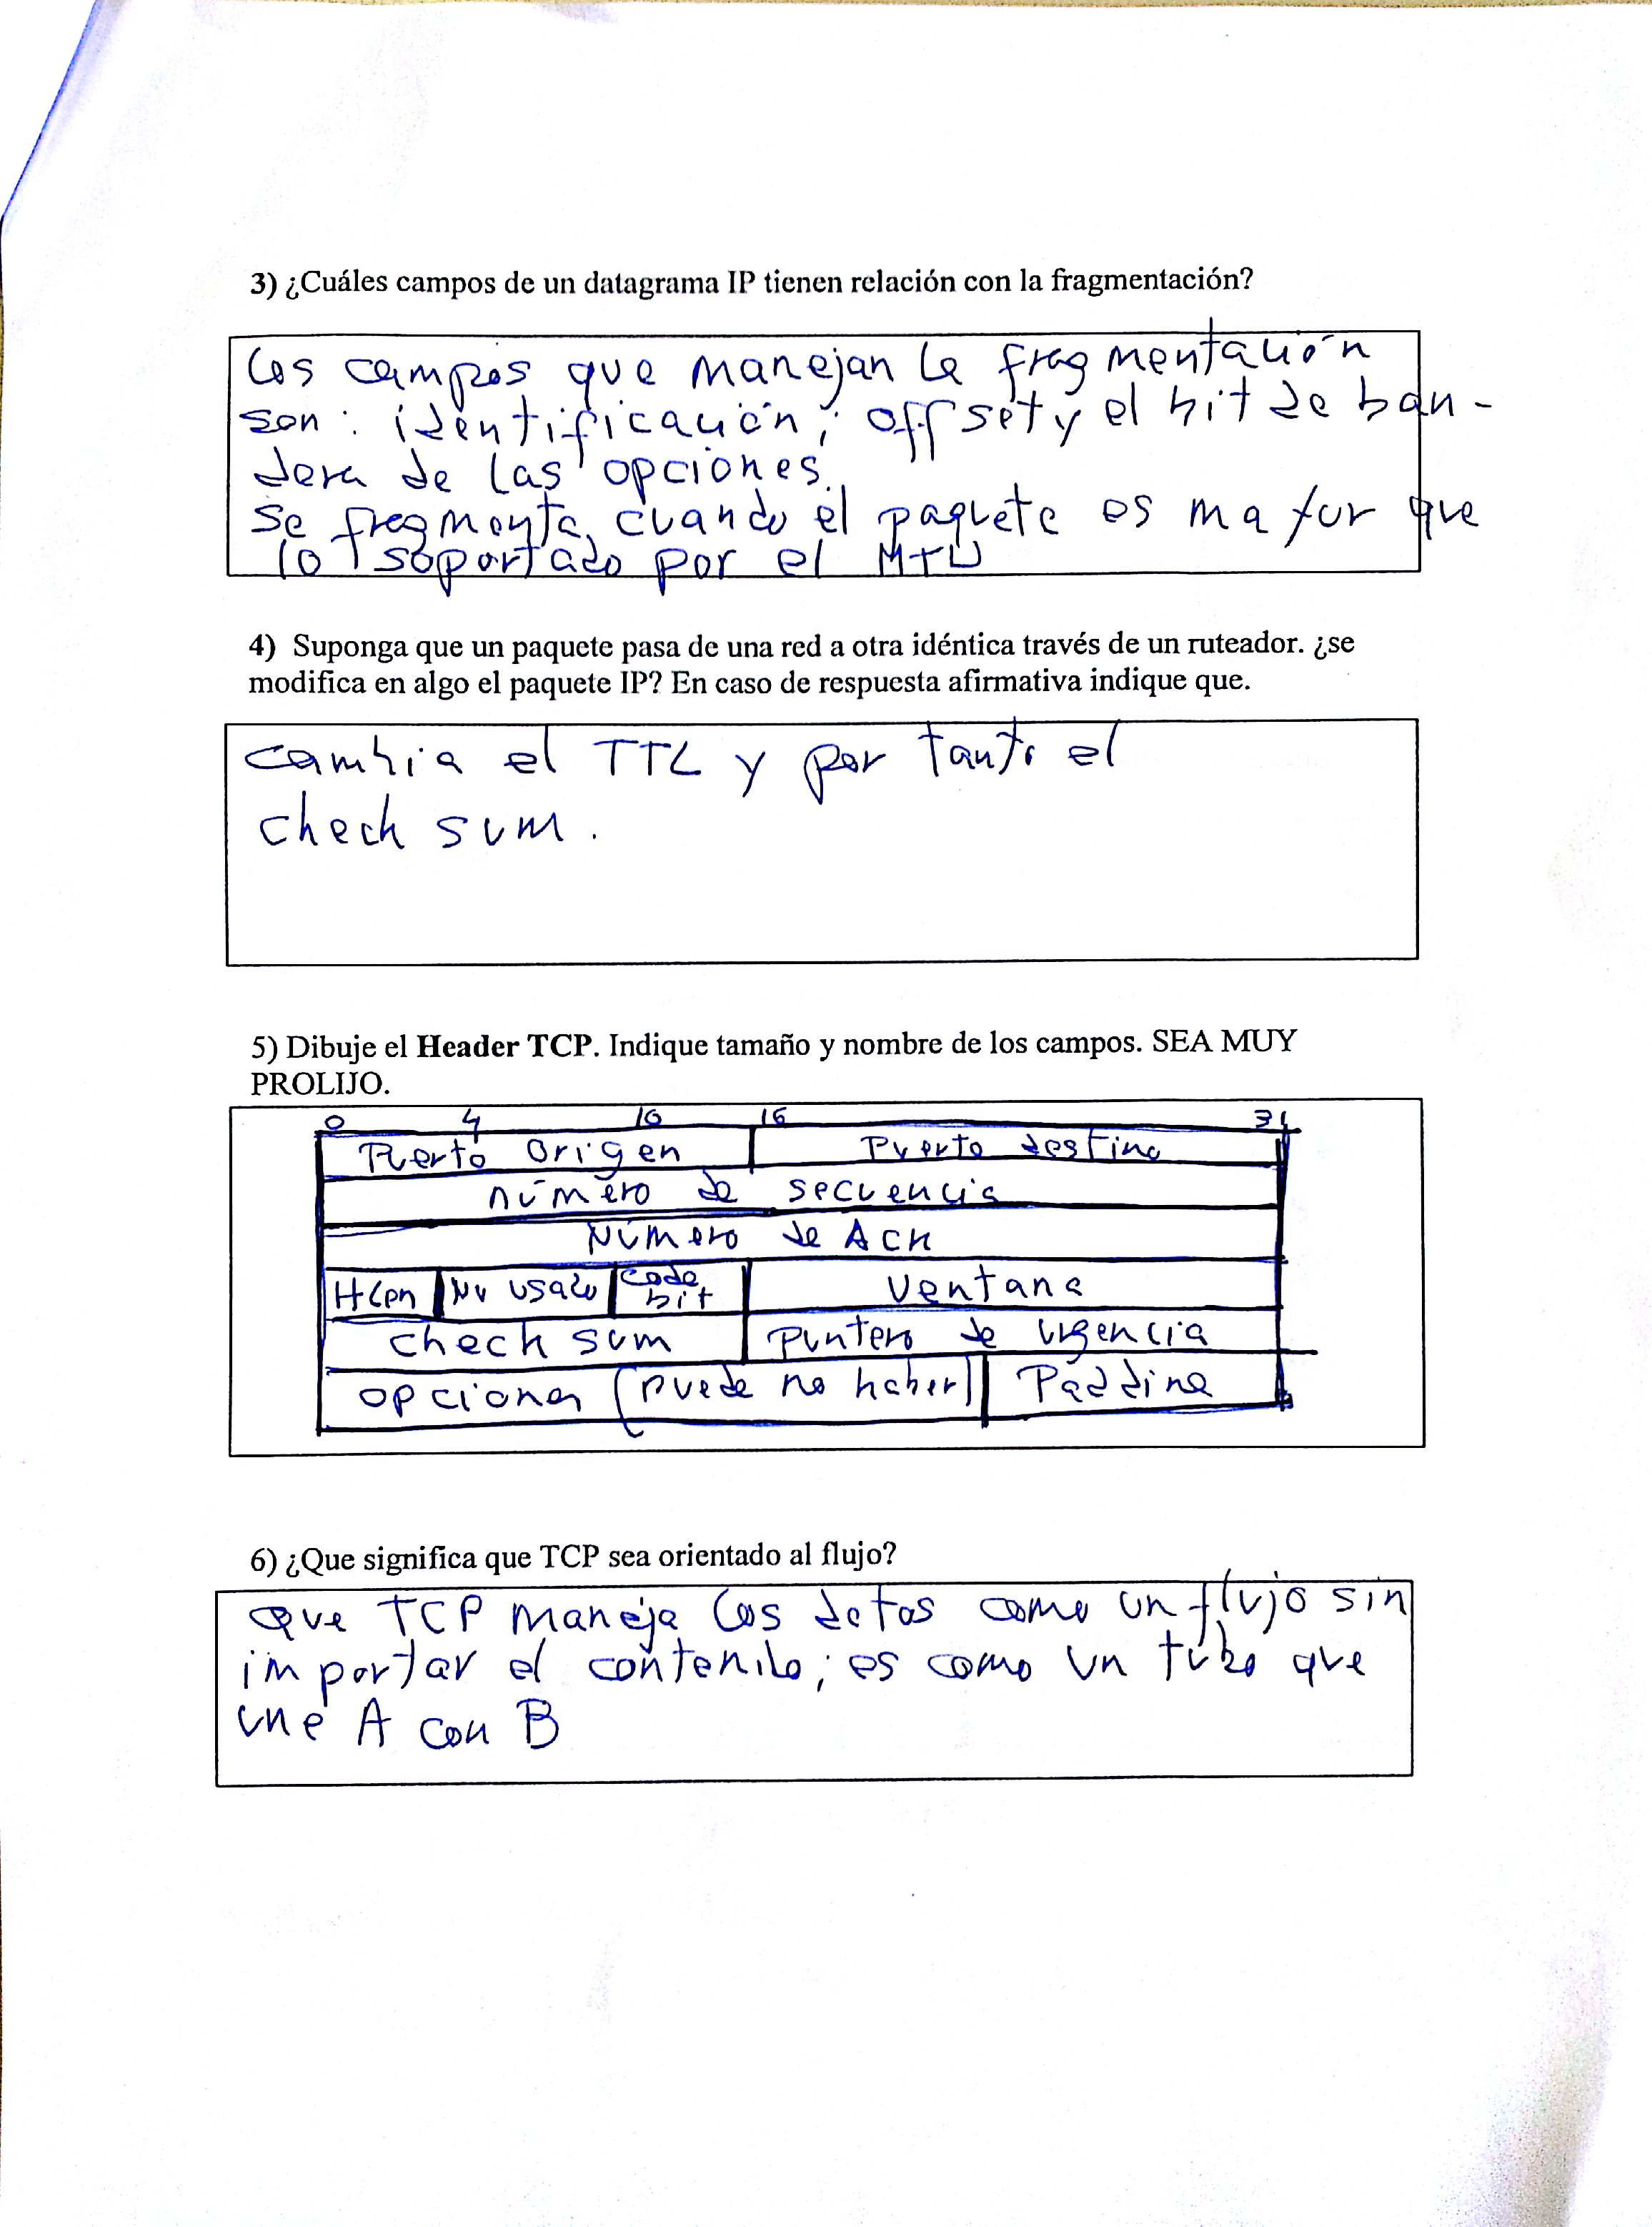 3) ¿Cuáles campos de un datagrama IP tienen relación con la fragmentación?
Los campos que manejan la fragmentación
son: identificación, offset y el bit de ban-
dera de las opciones.
Se fragmenta cuando el paquete es mayor que
lo soportado por el MTU
4) Suponga que un paquete pasa de una red a otra idéntica través de un ruteador. ¿se
modifica en algo el paquete IP? En caso de respuesta afirmativa indique que.
Cambia el TTL y por tanto el
check sum.
5) Dibuje el Header TCP. Indique tamaño y nombre de los campos. SEA MUY
PROLIJO.
0 4 10 16 31
Puerto Origen Puerto destino
número de secuencia
Número de Ack
HLen No usado Code bit Ventana
check sum Puntero de urgencia
opciones (puede no haber) Padding
6) ¿Que significa que TCP sea orientado al flujo?
Que TCP maneja los datos como un flujo sin
importar el contenido; es como un tubo que
une A con B